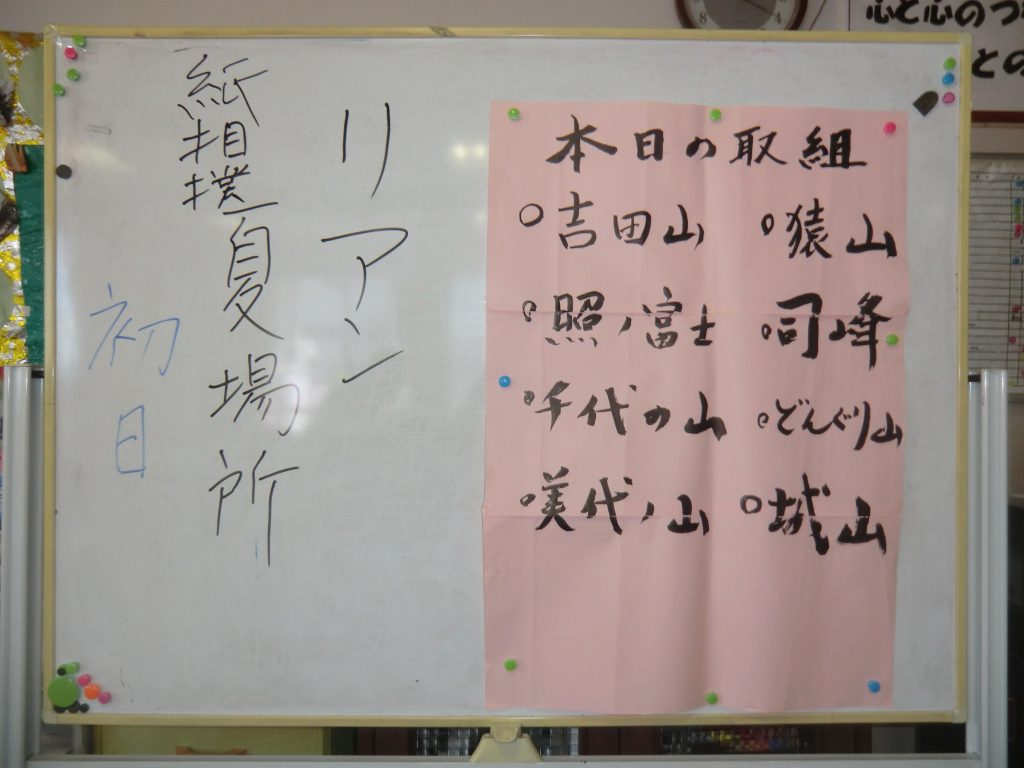 心と心のつ
との
リアン
紙相撲夏場所
初日
本日の取組
○吉田山 ○猿山
○照ノ富士 ○司峰
○千代の山 ○どんぐり山
○美代ノ山 ○城山